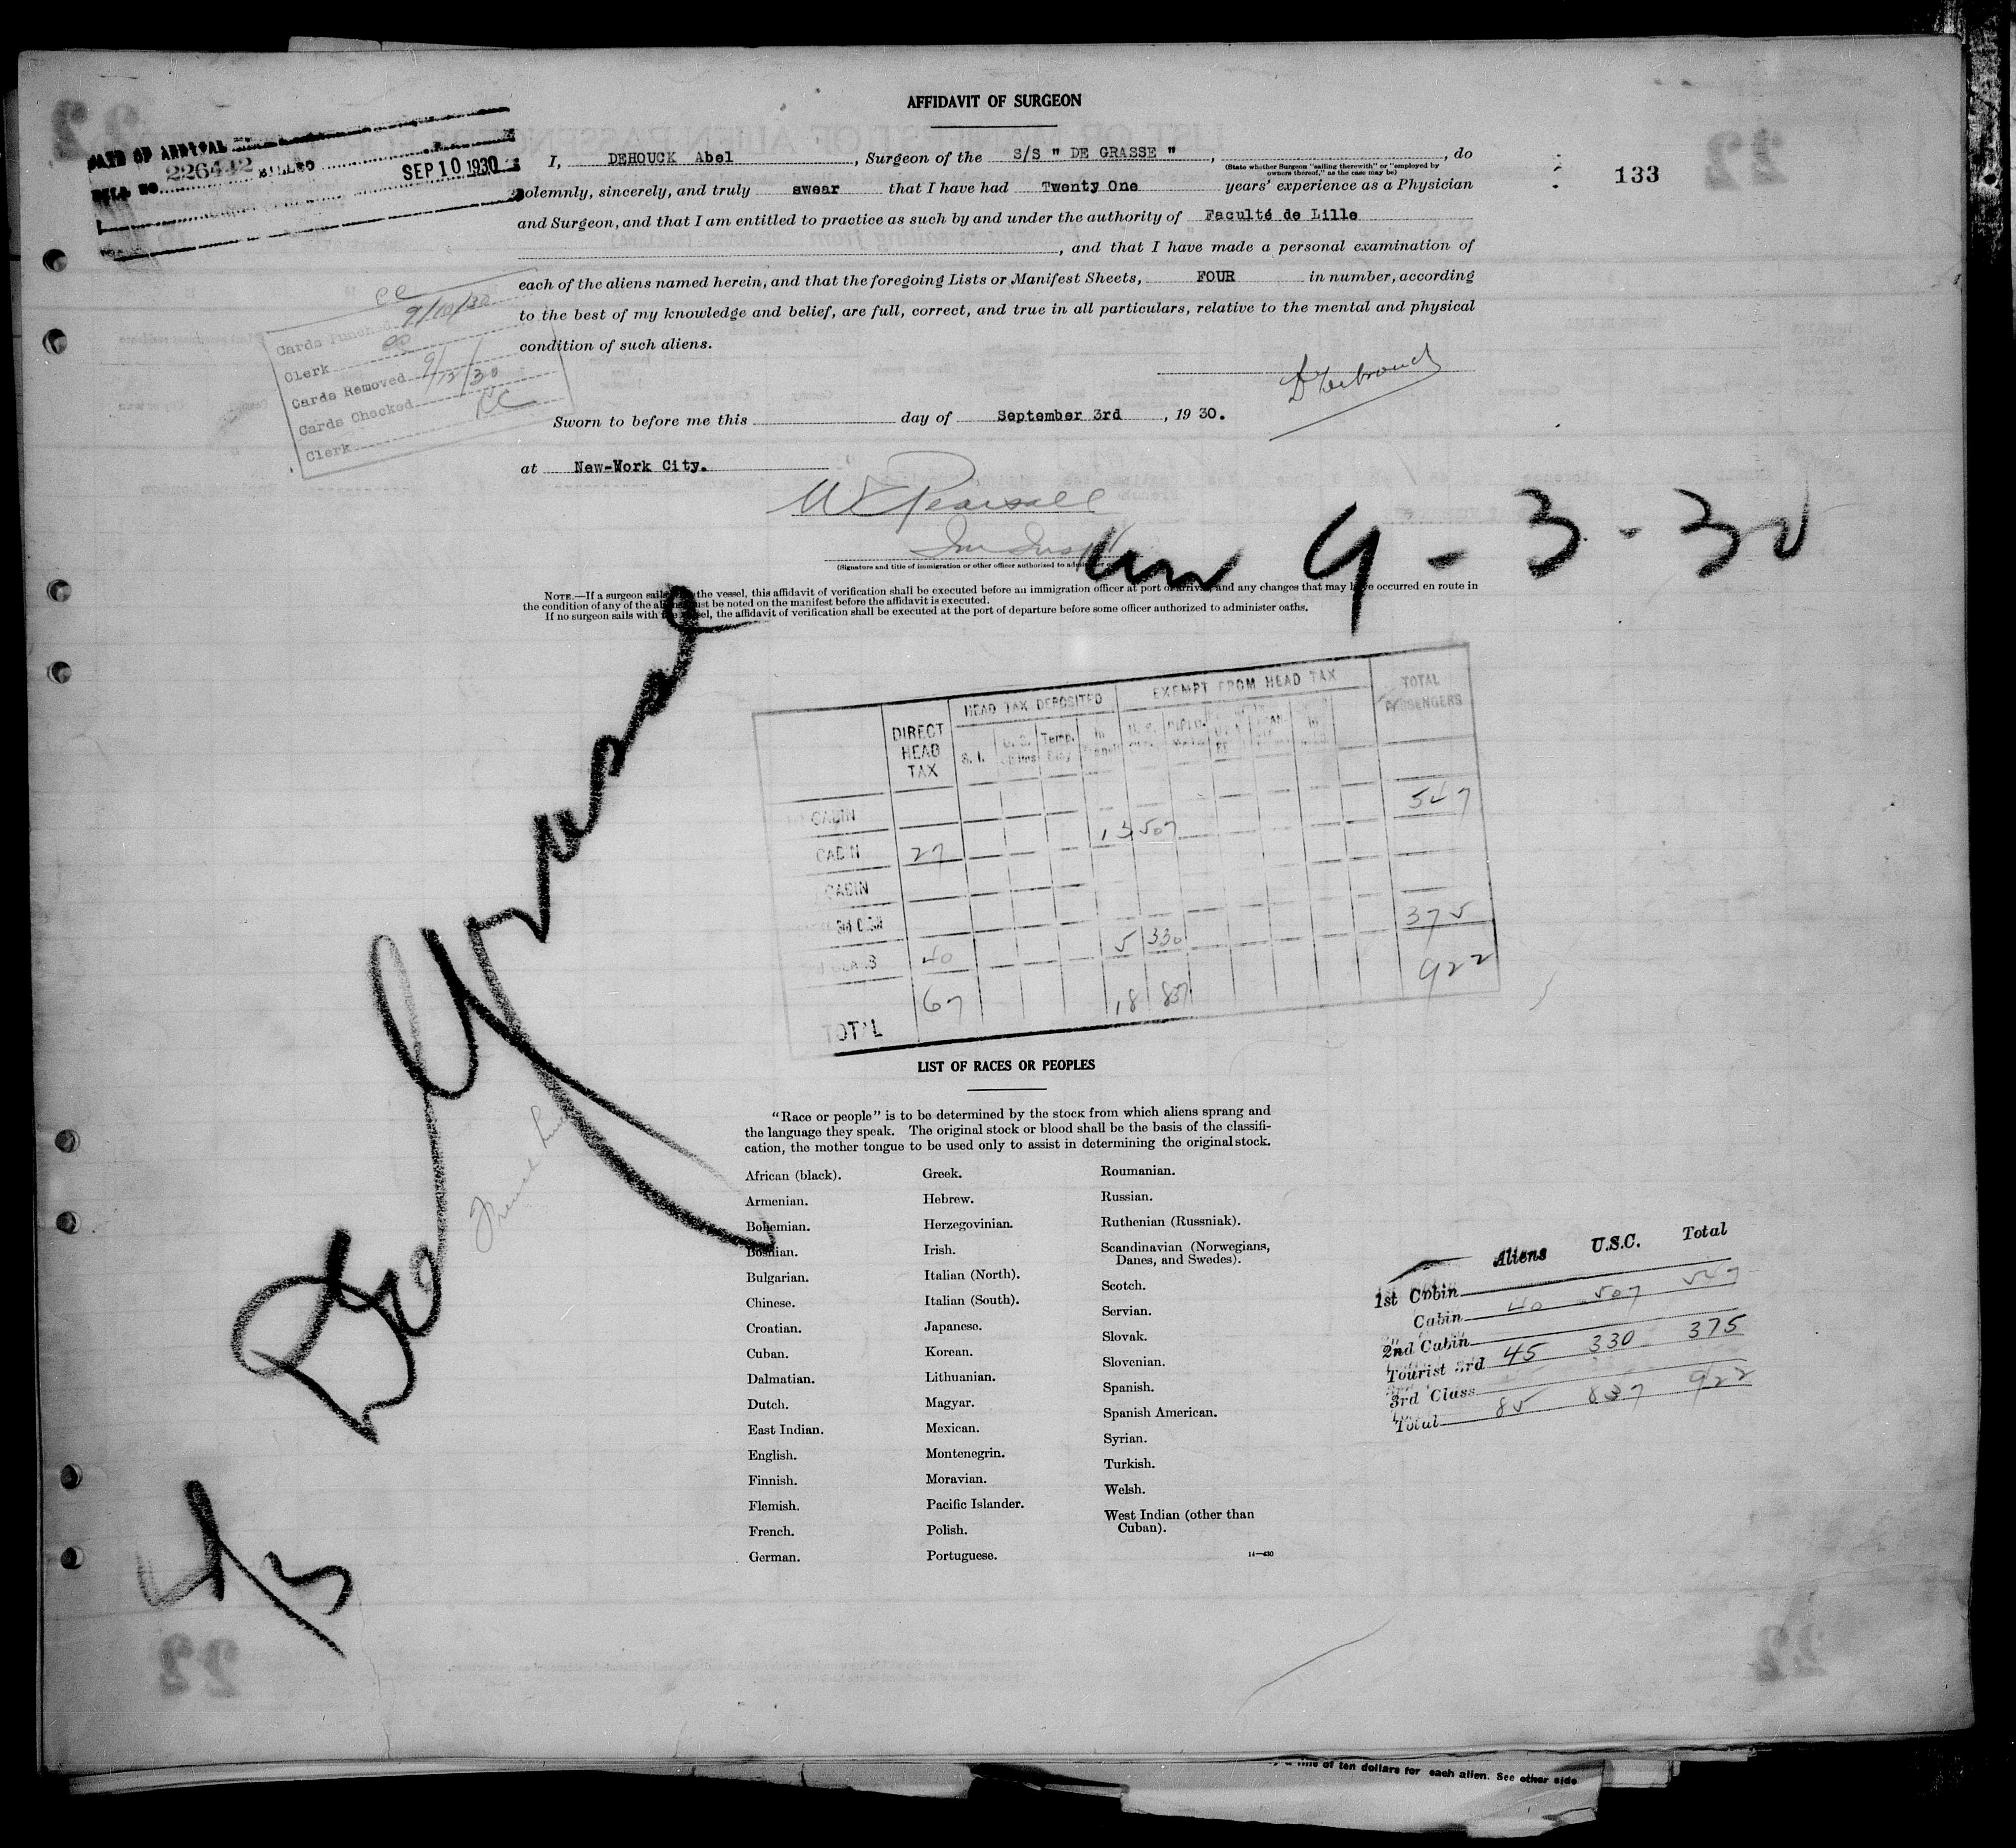 AFFIDAVIT OF SURGEON
DATE OF ARRIVAL
BILL NO. 226442 BILLED SEP 10 1930
133
I, DEHOUCK Abel, Surgeon of the S/S " DE GRASSE ", do
(State whether Surgeon "sailing therewith" or "employed by
owners thereof," as the case may be)
solemnly, sincerely, and truly swear that I have had Twenty One years' experience as a Physician
and Surgeon, and that I am entitled to practice as such by and under the authority of Faculté de Lille
, and that I have made a personal examination of
each of the aliens named herein, and that the foregoing Lists or Manifest Sheets, FOUR in number, according
to the best of my knowledge and belief, are full, correct, and true in all particulars, relative to the mental and physical
condition of such aliens.
cc
Cards Punched 9/10/30
Clerk
Cards Removed 9/12/30
Cards Checked CC
Clerk
Sworn to before me this day of September 3rd, 1930.
at New-Work City.
W E Pearsall
Im Insp
(Signature and title of immigration or other officer authorized to
9-3-30
NOTE.—If a surgeon sails the vessel, this affidavit of verification shall be executed before an immigration officer at port of arrival, and any changes that may have occurred en route in
the condition of any of the aliens must be noted on the manifest before the affidavit is executed.
If no surgeon sails with the vessel, the affidavit of verification shall be executed at the port of departure before some officer authorized to administer oaths.
DIRECT HEAD TAX
HEAD TAX DEPOSITED
EXEMPT FROM HEAD TAX
TOTAL PASSENGERS
S. I.
Temp.
U. S.
CABIN 547
CABIN 27 13 507
CABIN
375
40 5 330
922
TOTAL 67 18 837
De Grasse
French Line
4/3
LIST OF RACES OR PEOPLES
"Race or people" is to be determined by the stock from which aliens sprang and
the language they speak. The original stock or blood shall be the basis of the classifi-
cation, the mother tongue to be used only to assist in determining the original stock.
African (black).
Armenian.
Bohemian.
Bosnian.
Bulgarian.
Chinese.
Croatian.
Cuban.
Dalmatian.
Dutch.
East Indian.
English.
Finnish.
Flemish.
French.
German.
Greek.
Hebrew.
Herzegovinian.
Irish.
Italian (North).
Italian (South).
Japanese.
Korean.
Lithuanian.
Magyar.
Mexican.
Montenegrin.
Moravian.
Pacific Islander.
Polish.
Portuguese.
Roumanian.
Russian.
Ruthenian (Russniak).
Scandinavian (Norwegians,
Danes, and Swedes).
Scotch.
Servian.
Slovak.
Slovenian.
Spanish.
Spanish American.
Syrian.
Turkish.
Welsh.
West Indian (other than
Cuban).
14—430
Aliens U.S.C. Total
1st Cabin
Cabin 40 507 547
2nd Cabin
Tourist 3rd 45 330 375
3rd Class
Total 85 837 922
22
22
22
22
of ten dollars for each alien. See other side